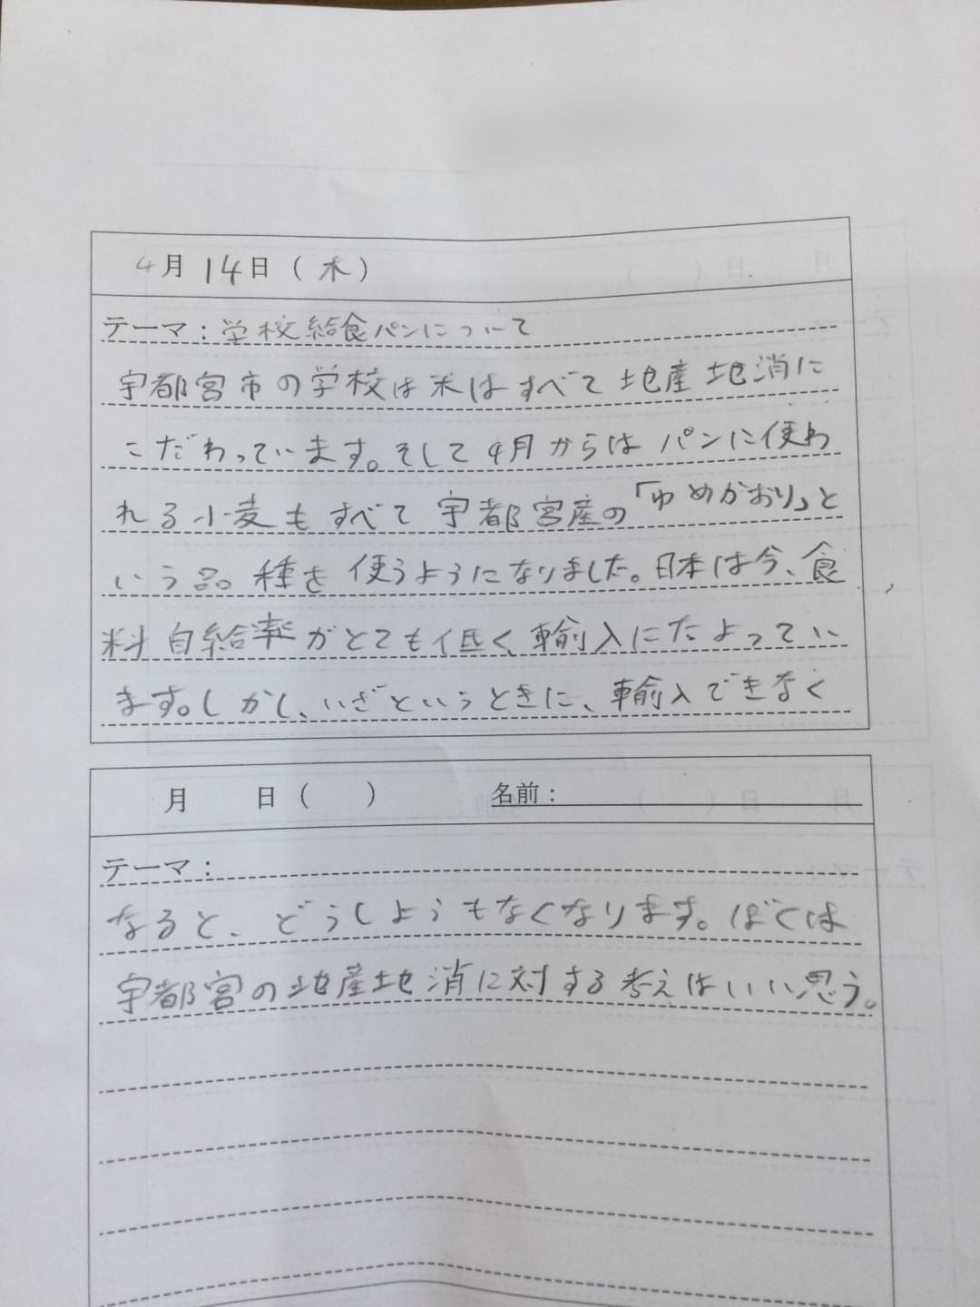 4月14日(木)
テーマ:学校給食パンについて
宇都宮市の学校は米はすべて地産地消に
こだわっています。そして4月からはパンに使わ
れる小麦もすべて宇都宮産の「ゆめかおり」と
いう品種を使うようになりました。日本は今、食
料自給率がとても低く、輸入にたよってい
ます。しかし、いざというときに、輸入できなく
月 日( ) 名前:
テーマ:
なると、どうしようもなくなります。ぼくは
宇都宮の地産地消に対する考えはいい思う。